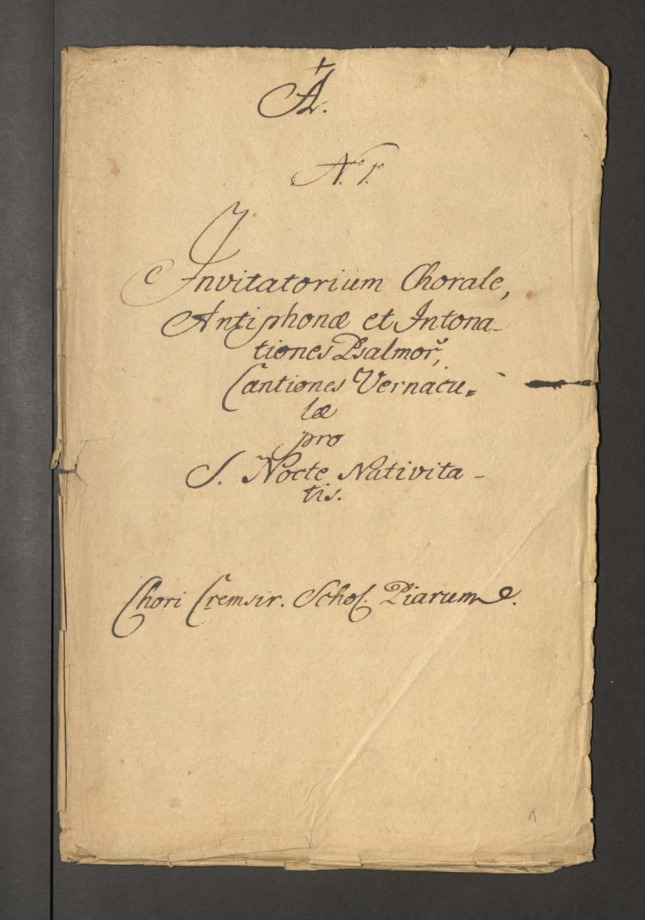 N. 1.
Invitatorium Chorale,
Antiphonæ et Intona-
tiones Psalmor̃,
Cantiones Vernacu=
læ
pro
S. Nocte Nativita-
tis.
Chori Cremsir. Schol. Piarum.
1